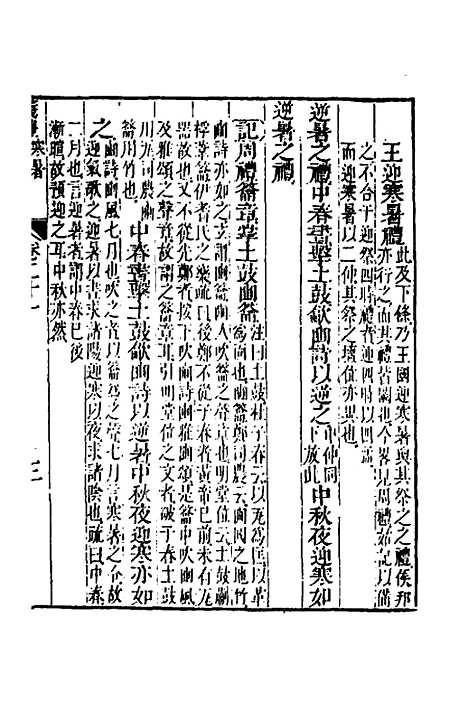 王迎寒暑禮此及下條乃王國迎寒暑與其祭之之禮侯邦
亦行之而其禮皆闕也今畧見周禮亦記以備
之不合于迎祭四時禮者迎四時以四氣
而迎寒暑以二仲其祭之壇位亦異也
逆暑之禮中春晝擊土鼓龡豳詩以逆之中仲同下放此中秋夜迎寒如
逆暑之禮
記周禮籥章掌土鼓豳籥注曰土鼓杜子春云以瓦為匡以革
為面也豳籥鄭司農云豳國之地竹
豳詩亦如之玄謂豳籥豳人吹籥之聲章也明堂位云土鼓蒯
桴葦籥伊耆氏之樂疏曰後鄭不從子春者黄帝已前未有瓦
器故先鄭也又不從先鄭者按下吹豳詩豳雅豳頌是籥中吹豳風
及雅頌之聲章故謂之籥章耳引明堂位之文者破子春土鼓
用瓦司農豳
籥用竹也中春晝擊土鼓龡豳詩以逆暑中秋夜迎寒亦如
之豳詩豳風七月也吹之者以籥為之聲七月言寒暑之事故
迎氣歌之迎暑以晝求諸陽迎寒以夜求諸陰也疏曰中春
二月也言迎暑者謂中春巳後
漸暄故預迎之耳中秋亦然
寒暑
卷二十一